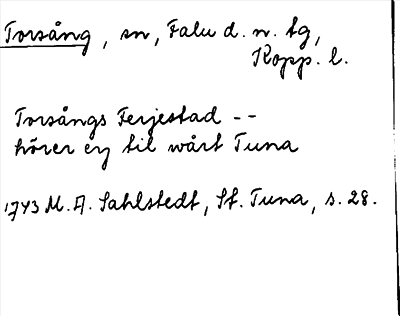 Torsång, sn, Falu d. n. tg,
Kopp. l.
Torsångs Ferjestad --
hörer ey til wårt Tuna
1743 M. A. Sahlstedt, St. Tuna, s. 28.